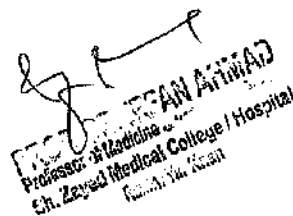 PROF. DR. IRFAN AHMAD
Professor of Medicine
Sh. Zayed Medical College / Hospital
Rahim Yar Khan